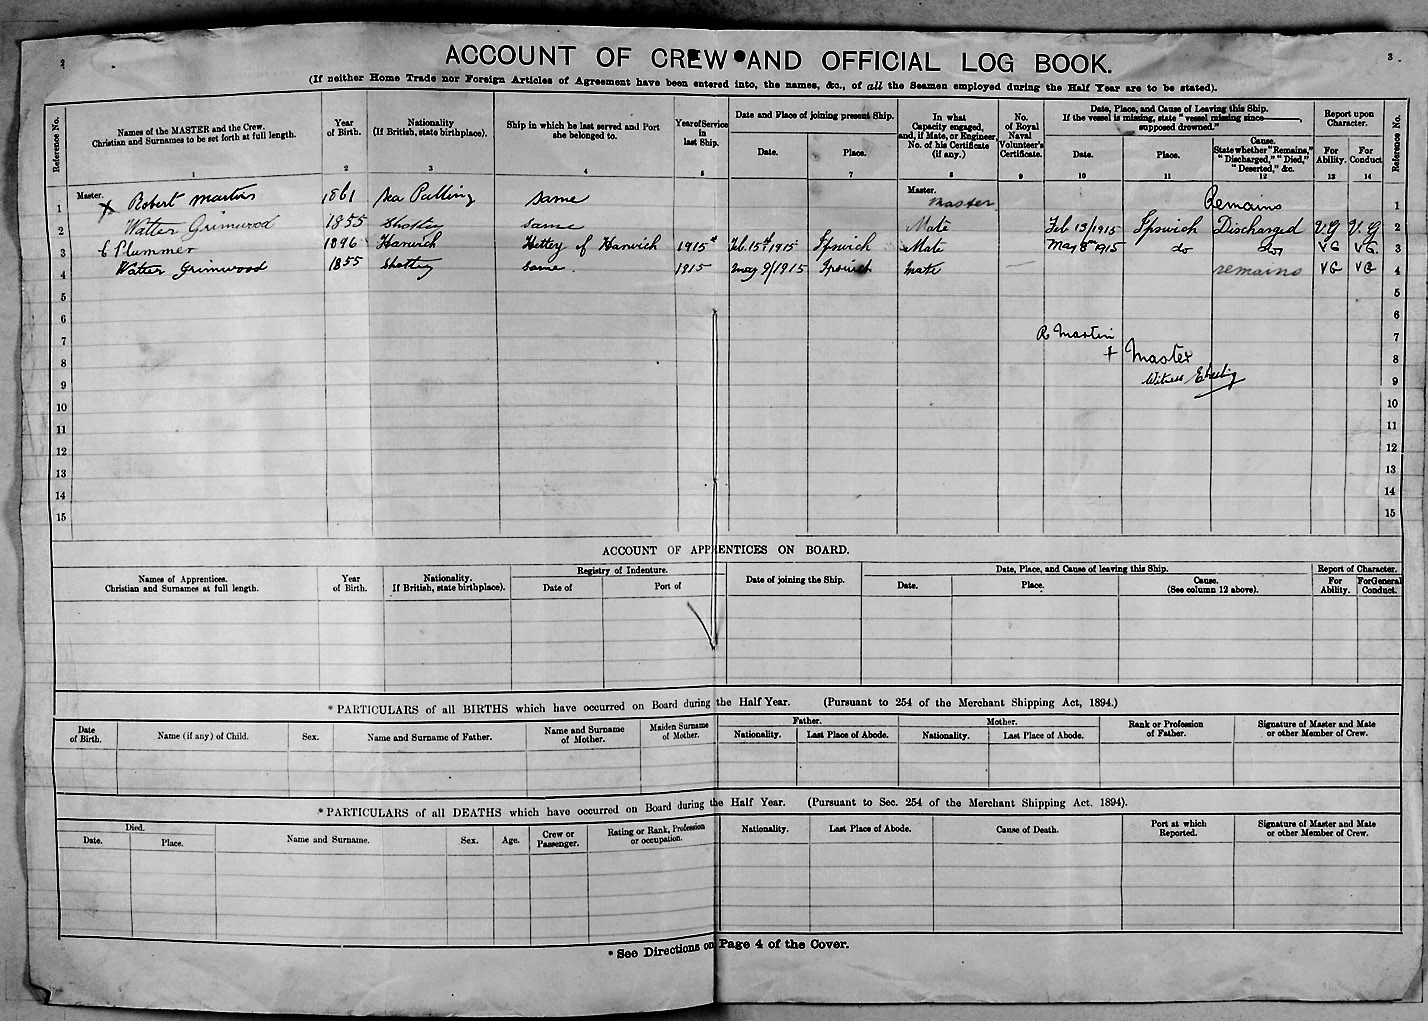 2
ACCOUNT OF CREW AND OFFICIAL LOG BOOK.
3
(If neither Home Trade nor Foreign Articles of Agreement have been entered into, the names, &c., of all the Seamen employed during the Half Year are to be stated).
Reference No.
Names of the MASTER and the Crew.
Christian and Surnames to be set forth at full length.
1
Year
of Birth.
2
Nationality
(If British, state birthplace).
3
Ship in which he last served and Port
she belonged to.
4
Year of Service
in
last Ship.
5
Date and Place of joining present Ship.
Date.
Place.
7
In what
Capacity engaged,
and, if Mate, or Engineer,
No. of his Certificate
(if any.)
8
No.
of Royal
Naval
Volunteer's
Certificate.
9
Date, Place, and Cause of Leaving this Ship.
If the vessel is missing, state "vessel missing since———,
supposed drowned."
Date.
10
Place.
11
Cause.
State whether "Remains,"
"Discharged," "Died,"
"Deserted," &c.
12
Report upon
Character.
For
Ability.
13
For
Conduct
14
Reference No.
1 Master. X Robert Martin 1861 Sea Palling same Master. Master Remains 1
2 Walter Grimwood 1855 Shotley same Mate Feb 13/1915 Ipswich Discharged V.G V.G 2
3 C Plummer 1896 Harwich Hettey of Harwich 1915 Feb. 15th 1915 Ipswich Mate May 8th 1915 do do VG VG 3
4 Walter Grimwood 1855 Shotley same 1915 May 9/1915 Ipswich Mate — remains VG VG 4
5 5
6 6
7 R Martin 7
8 + Master 8
9 Witness 9
10 10
11 11
12 12
13 13
14 14
15 15
ACCOUNT OF APPRENTICES ON BOARD.
Names of Apprentices.
Christian and Surnames at full length.
Year
of Birth.
Nationality.
If British, state birthplace).
Registry of Indenture.
Date of
Port of
Date of joining the Ship.
Date, Place, and Cause of leaving this Ship.
Date.
Place.
Cause.
(See column 12 above).
Report of Character.
For
Ability.
For General
Conduct.
*PARTICULARS of all BIRTHS which have occurred on Board during the Half Year. (Pursuant to 254 of the Merchant Shipping Act, 1894.)
Date
of Birth.
Name (if any) of Child.
Sex.
Name and Surname of Father.
Name and Surname
of Mother.
Maiden Surname
of Mother.
Father.
Nationality.
Last Place of Abode.
Mother.
Nationality.
Last Place of Abode.
Rank or Profession
of Father.
Signature of Master and Mate
or other Member of Crew.
*PARTICULARS of all DEATHS which have occurred on Board during the Half Year. (Pursuant to Sec. 254 of the Merchant Shipping Act. 1894).
Died.
Date.
Place.
Name and Surname.
Sex.
Age.
Crew or
Passenger.
Rating or Rank, Profession
or occupation.
Nationality.
Last Place of Abode.
Cause of Death.
Port at which
Reported.
Signature of Master and Mate
or other Member of Crew.
*See Directions on Page 4 of the Cover.